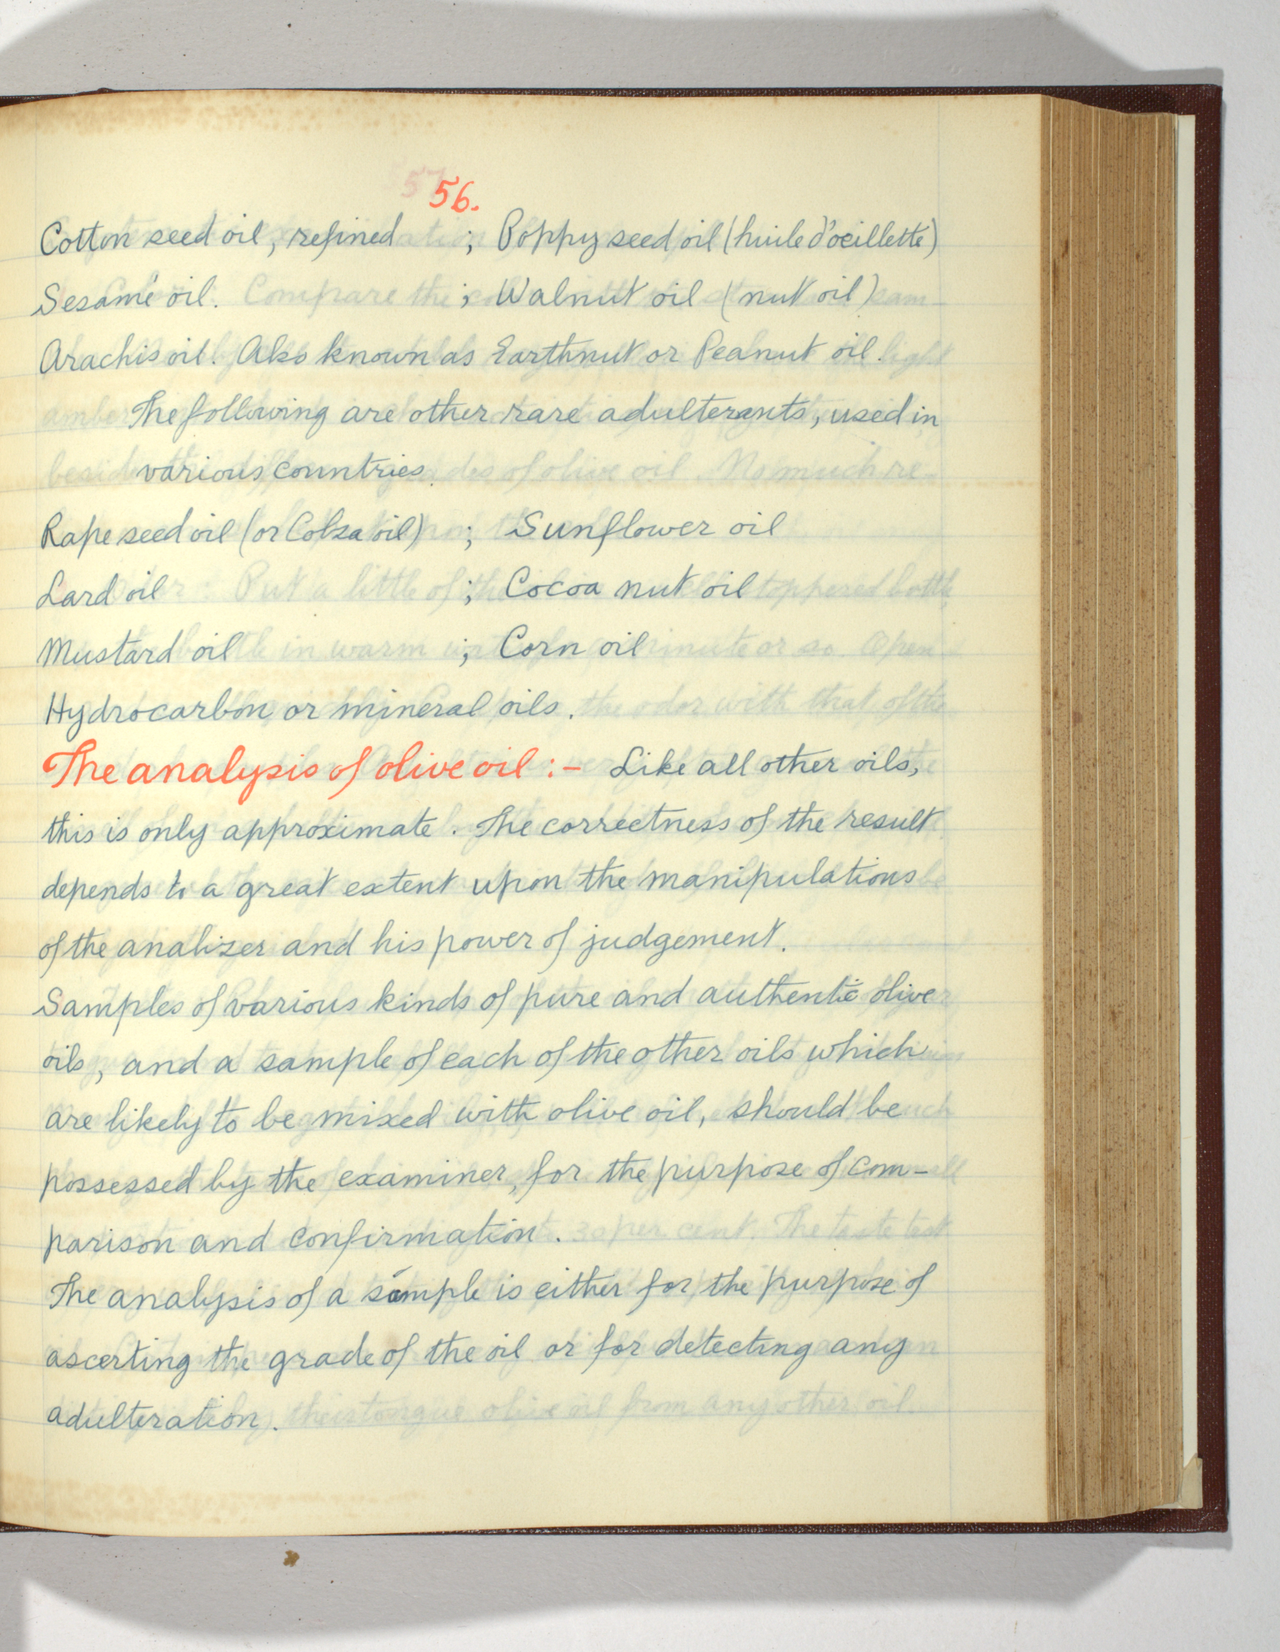 56.
Cotton seed oil, refined ; Poppy seed oil (huile d'oeillette)
Sesamé oil. ; Walnut oil (nut oil)
Arachis oil. Also known as Earthnut or Peanut oil.
The following are other rare adulterants, used in
various countries.
Rape seed oil (or Colza oil) ; Sunflower oil
Lard oil ; Cocoa nut oil
Mustard oil ; Corn oil
Hydrocarbon or mineral oils.
The analysis of olive oil :- Like all other oils,
this is only approximate. The correctness of the result
depends to a great extent upon the manipulations
of the analizer and his power of judgement.
Samples of various kinds of pure and authentic olive
oils, and a sample of each of the other oils which
are likely to be mixed with olive oil, should be
possessed by the examiner, for the purpose of com-
parison and confirmation.
The analysis of a sample is either for the purpose of
ascerting the grade of the oil or for detecting any
adulteration.